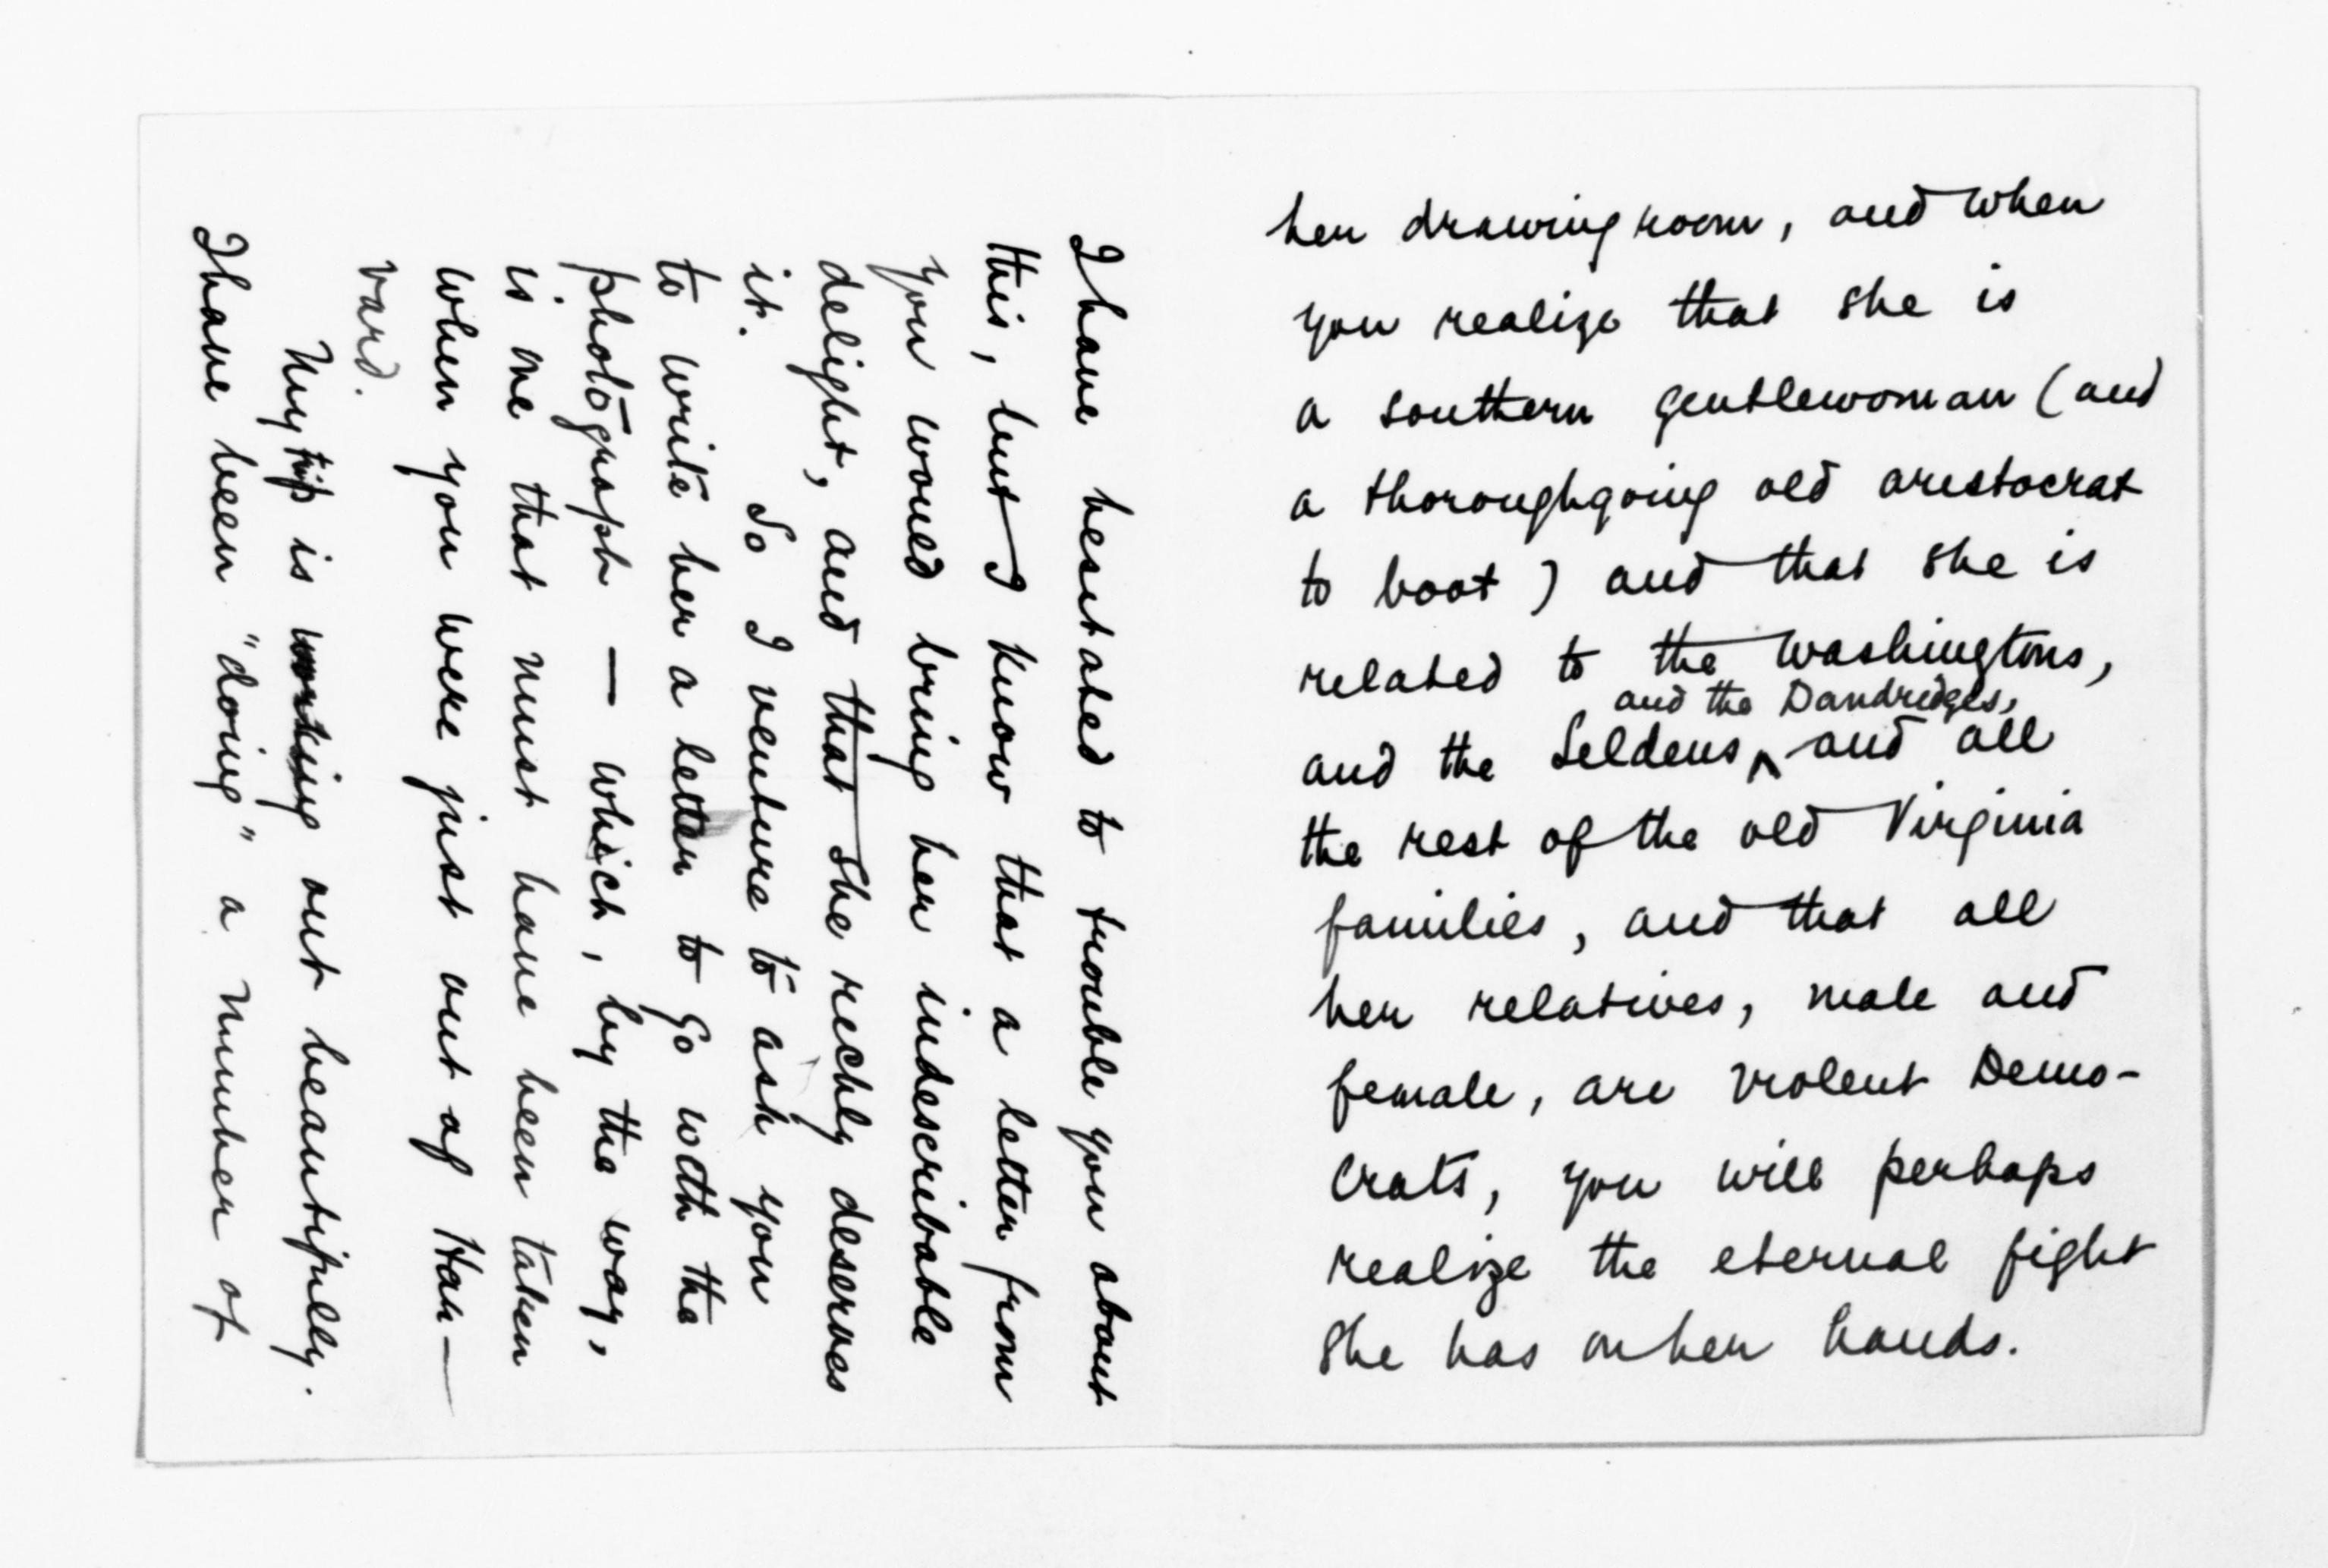 her drawing room, and when
you realize that she is
a southern gentlewoman (and
a thoroughgoing old aristocrat
to boot) and that she is
related to the Washingtons,
and the Dandridges,
and the Seldens ^ and all
the rest of the old Virginia
families, and that all
her relatives, male and
female, are violent Demo-
crats, you will perhaps
realize the eternal fight
she has on her hands.
I have hesitated to trouble you about
this, but I know that a letter from
you would bring her indescribable
delight, and that she richly deserves
it. So I venture to ask you
to write her a letter to go with the
photograph — which, by the way,
is one that must have been taken
when you were just out of Har-
vard.
My trip is working out beautifully.
I have been "doing" a number of